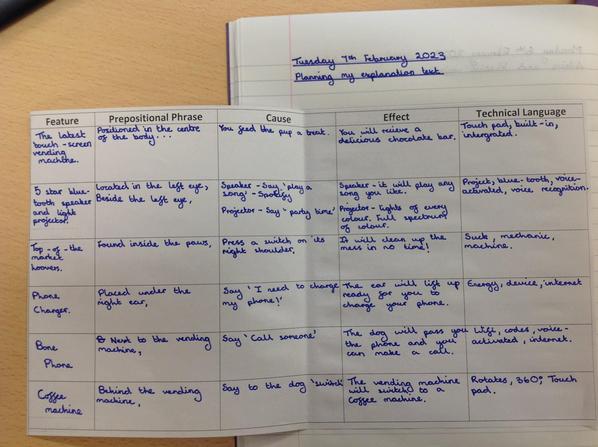 Tuesday 7th February 2023
Planning my explanation text
Feature
Prepositional Phrase
Cause
Effect
Technical Language
The latest
touch-screen
vending
machine.
Positioned in the centre
of the body...
You feed the pup a treat.
You will recieve a
delicious chocolate bar.
Touch pad, built-in,
intergrated.
5 star blue-
tooth speaker
and light
projector.
Located in the left eye,
Beside the left eye,
Speaker - Say 'play a
song' - Spotify
Projector - Say 'party time'
Speaker - it will play any
song you like.
Projector - Lights of every
colour. Full spectrum
of colour.
Project, blue-tooth, voice-
activated, voice recognition.
Top-of-the
market
hoovers.
Found inside the paws,
Press a switch on its
right shoulder.
It will clean up the
mess in no time!
Suck, mechanic,
machine.
Phone
Charger.
Placed under the
right ear,
Say 'I need to charge
my phone!'
The ear will lift up
ready for you to
charge your phone.
Energy, device, internet
Bone
Phone
Next to the vending
machine,
Say 'Call someone'
The dog will pass you
the phone and you
can make a call.
Wifi, codes, voice-
activated, internet.
Coffee
machine
Behind the vending
machine,
Say to the dog 'switch'
The vending machine
will switch to a
coffee machine.
Rotates, 360°, Touch
pad.